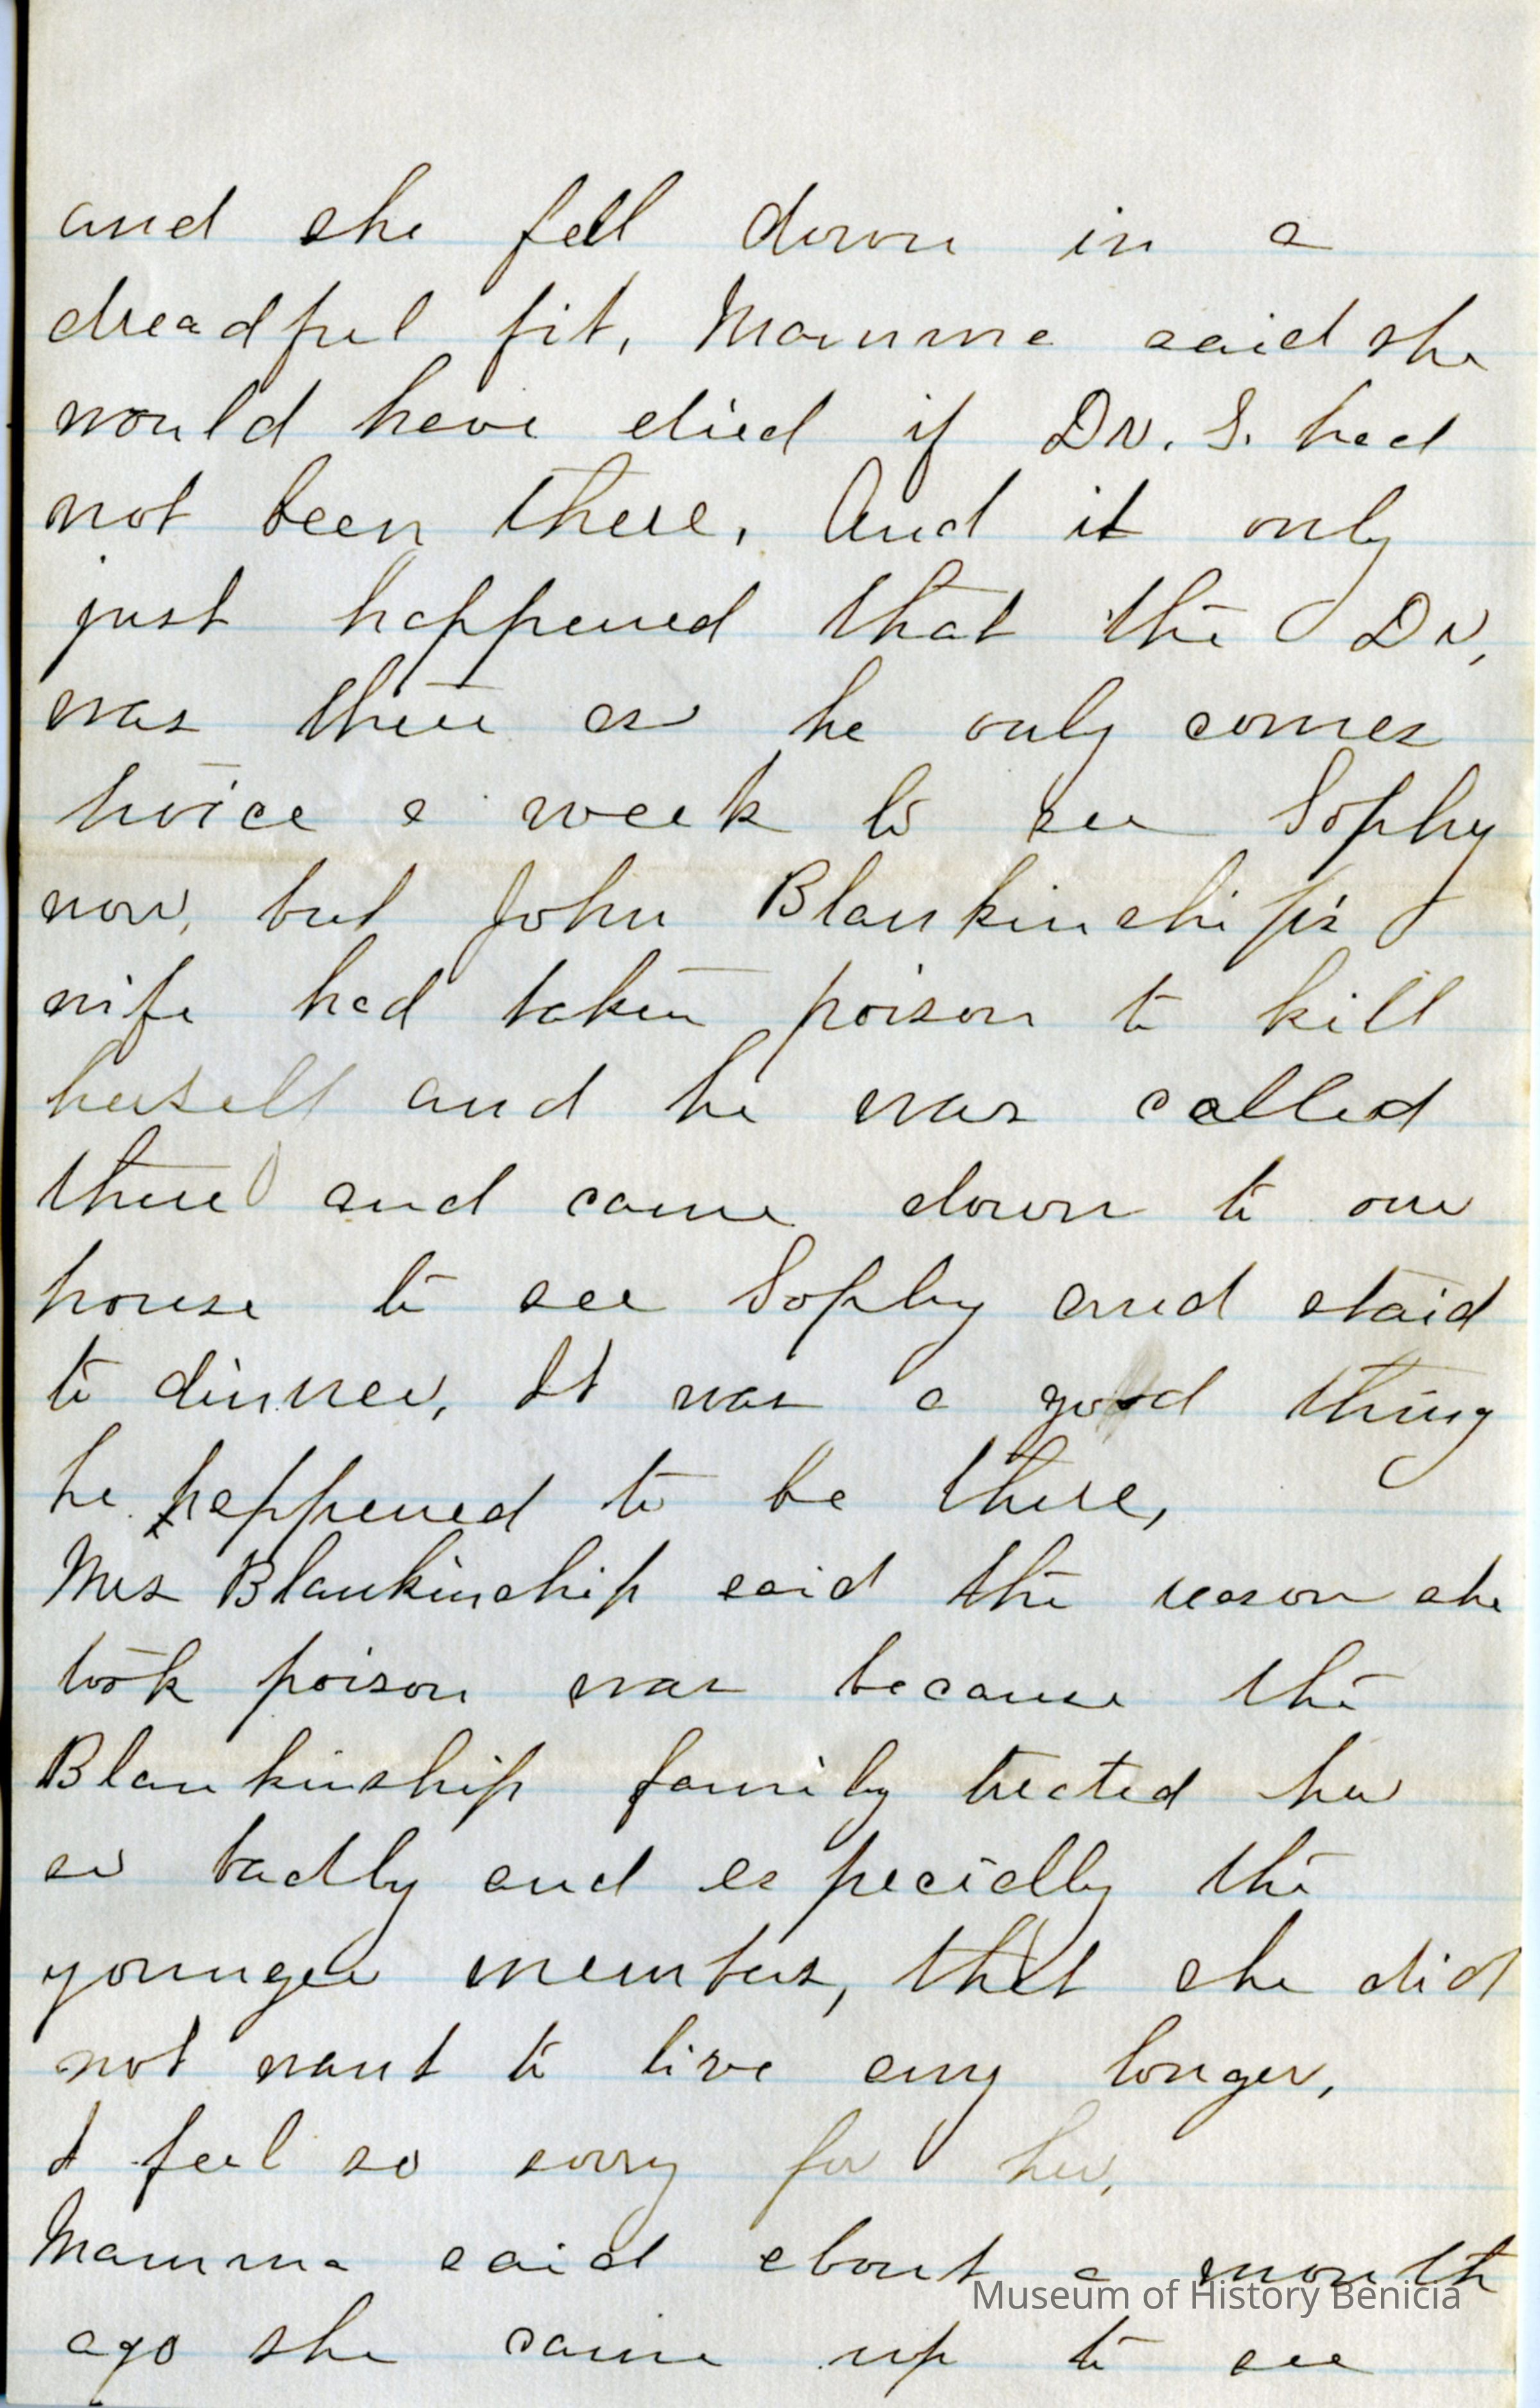 and she fell down in a
dreadful fit, Mamma said she
would have died if Dr. S. had
not been there, And it only
just happened that the Dr,
was there as he only comes
twice a week to see Sophy
now, but John Blankinship's
wife had taken poison to kill
herself and he was called
there and came down to our
house to see Sophy and staid
to dinner, It was a good thing
he happened to be there,
Mrs Blankinship said the reason she
took poison was because the
Blankinship family treated her
so badly and especially the
younger members, that she did
not want to live any longer,
I feel so sorry for her,
Mamma said about a month
ago she came up to see
Museum of History Benicia